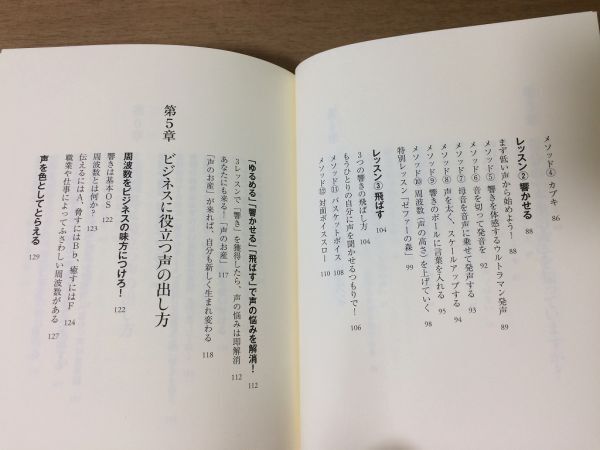 メソッド④ カブキ 86
レッスン② 響かせる 88
まず低い声から始めよう! 88
メソッド⑤ 響きを体感するウルトラマン発声 89
メソッド⑥ 音を切って発音を 92
メソッド⑦ 母音を音声に乗せて発声する 93
メソッド⑧ 声を太く、スケールアップする 94
メソッド⑨ 響きのボールに言葉を入れる 95
メソッド⑩ 周波数(声の高さ)を上げていく 98
特別レッスン「ゼファーの森」 99
レッスン③ 飛ばす 104
3つの響きの飛ばし方 104
もうひとりの自分に声を聞かせるつもりで! 106
メソッド⑪ バスケットボイス 108
メソッド⑫ 対面ボイススロー 110
「ゆるめる」「響かせる」「飛ばす」で声の悩みを解消! 112
3レッスンで「響き」を獲得したら、声の悩みは即解消 112
あなたにも来る!「声のお産」 117
「声のお産」が来れば、自分も新しく生まれ変わる 118
第5章 ビジネスに役立つ声の出し方
周波数をビジネスの味方につけろ! 122
響きは基本OS 122
周波数とは何か? 123
伝えるにはA、脅すにはB♭、癒すにはF 124
職業や仕事によってふさわしい周波数がある 127
声を色としてとらえる 129